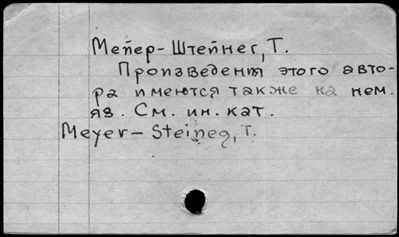 Мейер-Штейнег, Т.
Произведения этого авто-
ра имеются также на нем.
яз. См. ин. кат.
Meyer-Steineg, T.